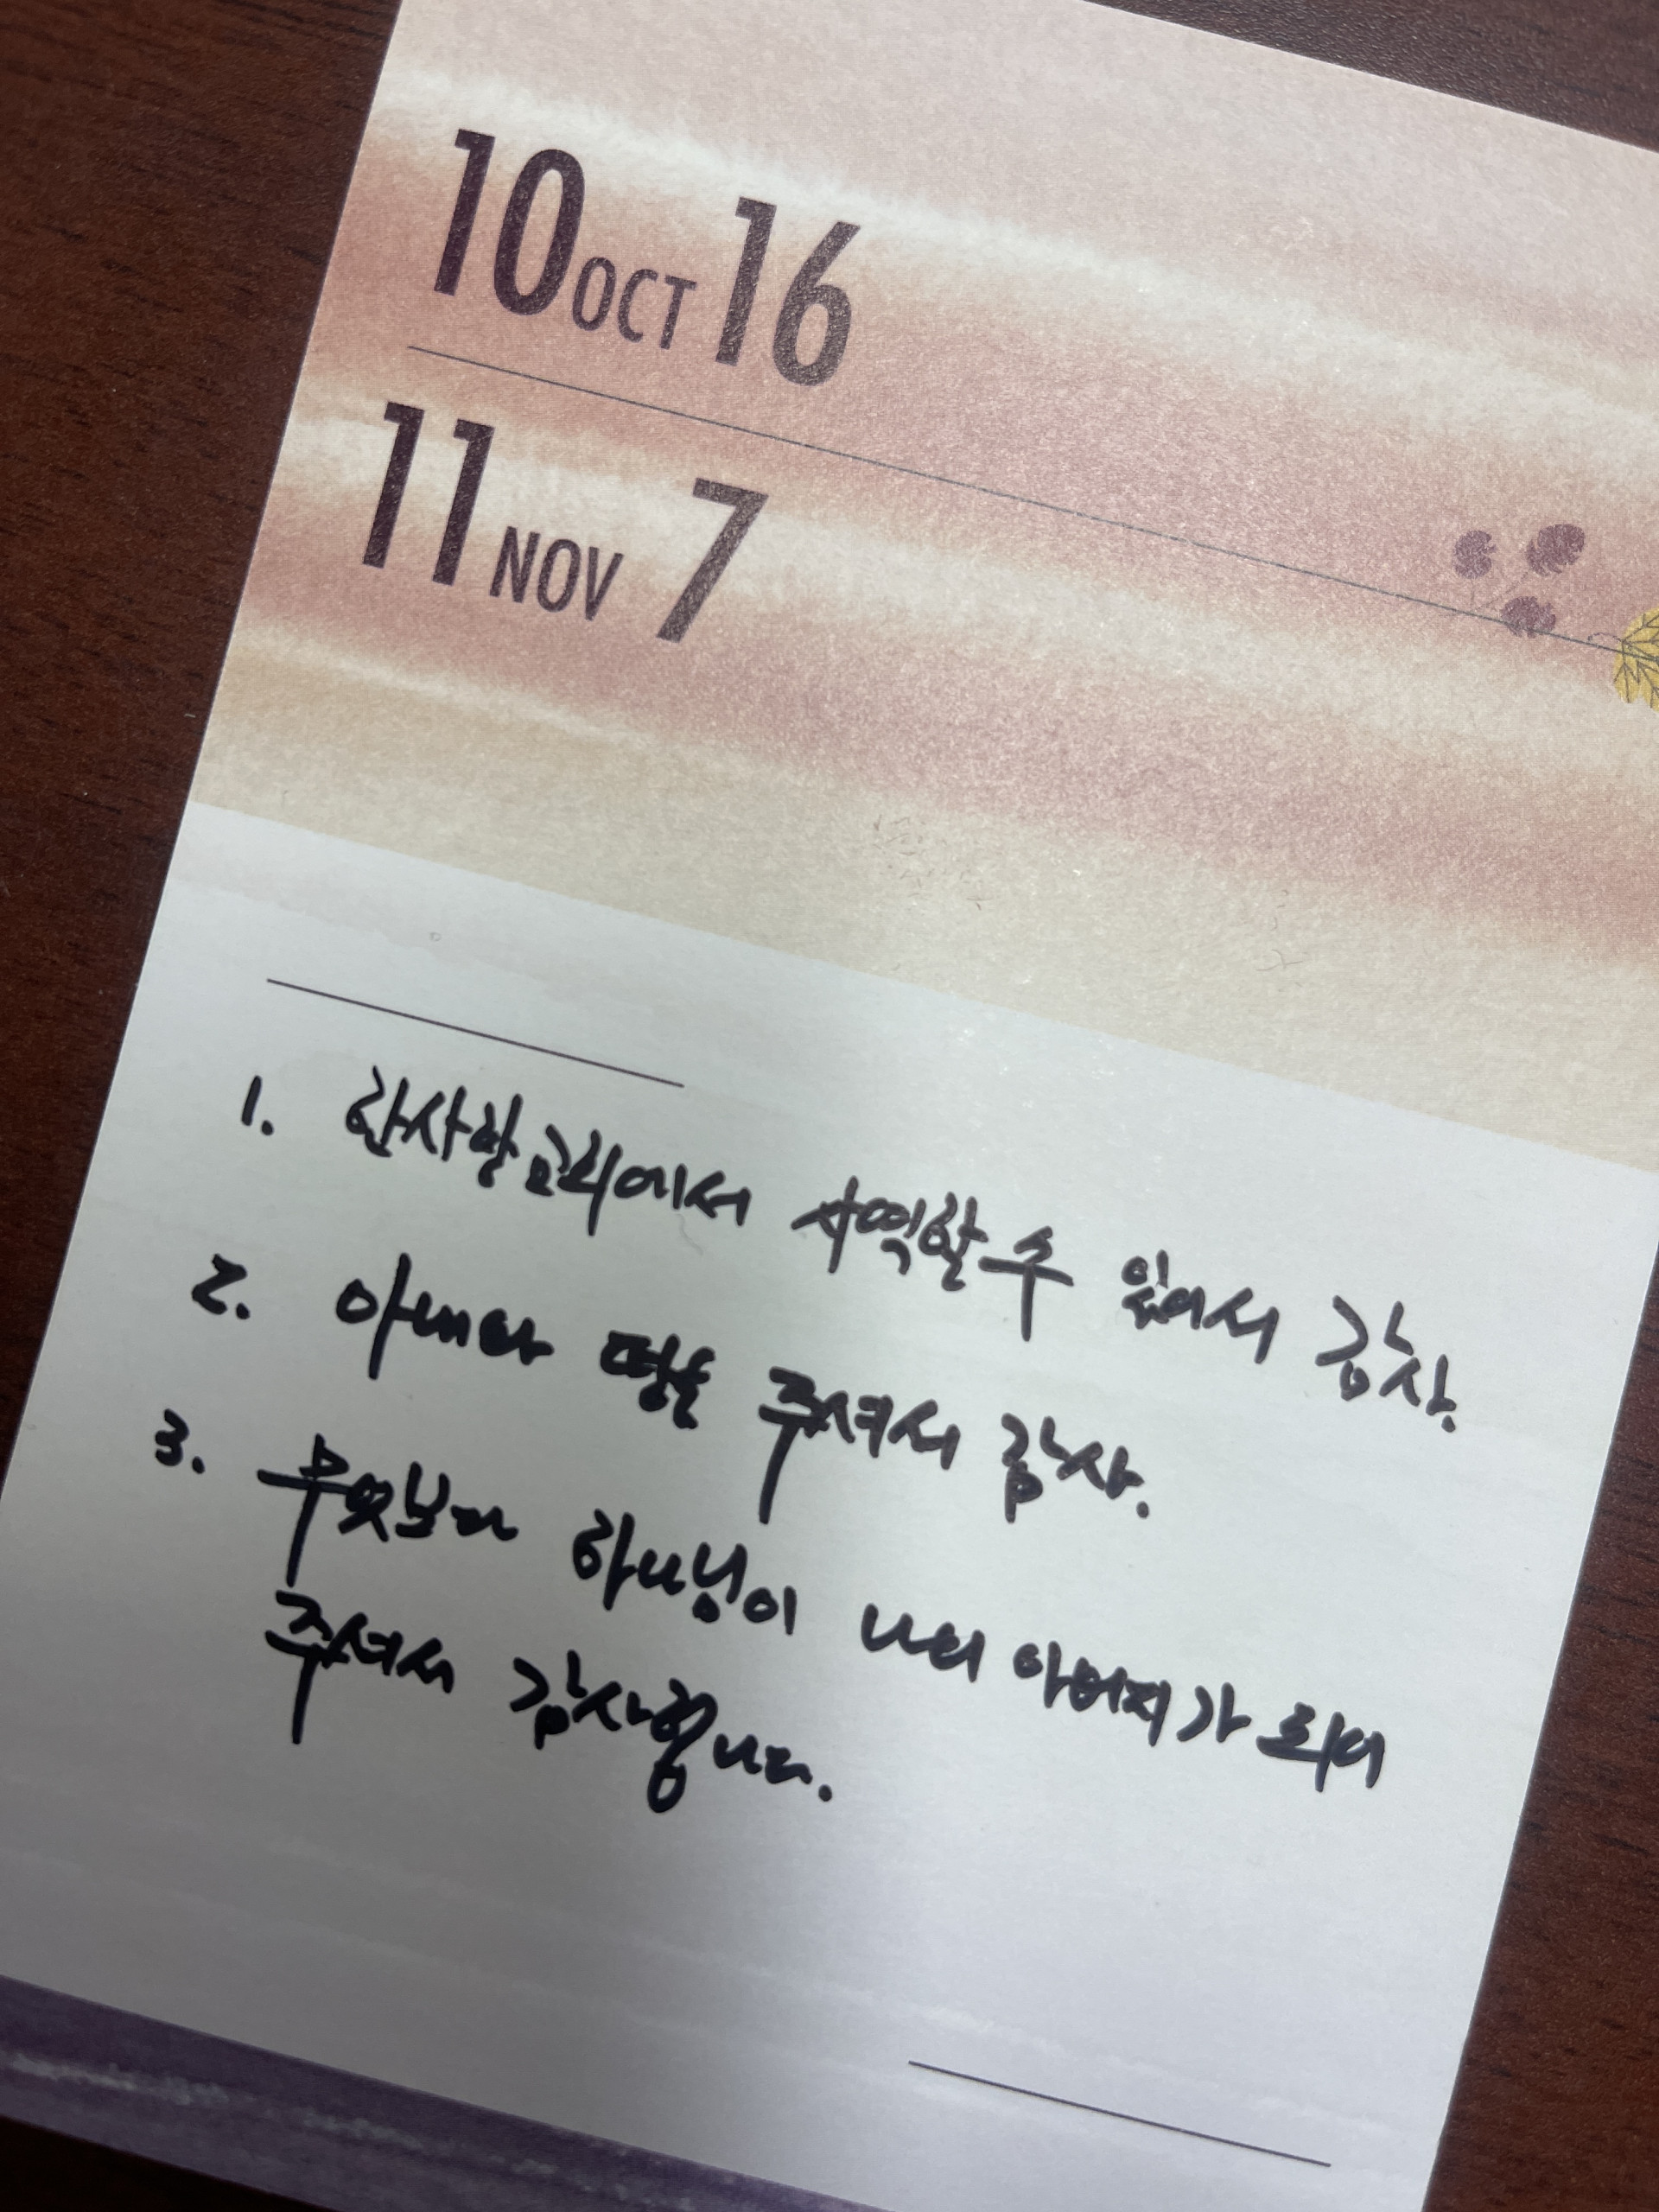 10 OCT 16
11 NOV 7
1. 한사랑교회에서 사역할 수 있어서 감사.
2. 아내와 딸을 주셔서 감사.
3. 무엇보다 하나님이 나의 아버지가 되어
주셔서 감사합니다.